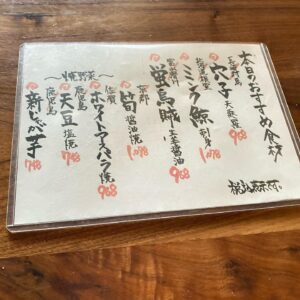 本日のおすすめ食材
長崎対馬
穴子 天ぷら 968
ミンク鯨 刺身 1,078
富山滑川
蛍烏賊 生姜醤油 968
京都
筍 醤油焼 1,078
〜焼野菜〜
佐賀
ホワイトアスパラ焼 968
鹿児島
天豆 塩焼 748
鹿児島
新じゃが芋 748